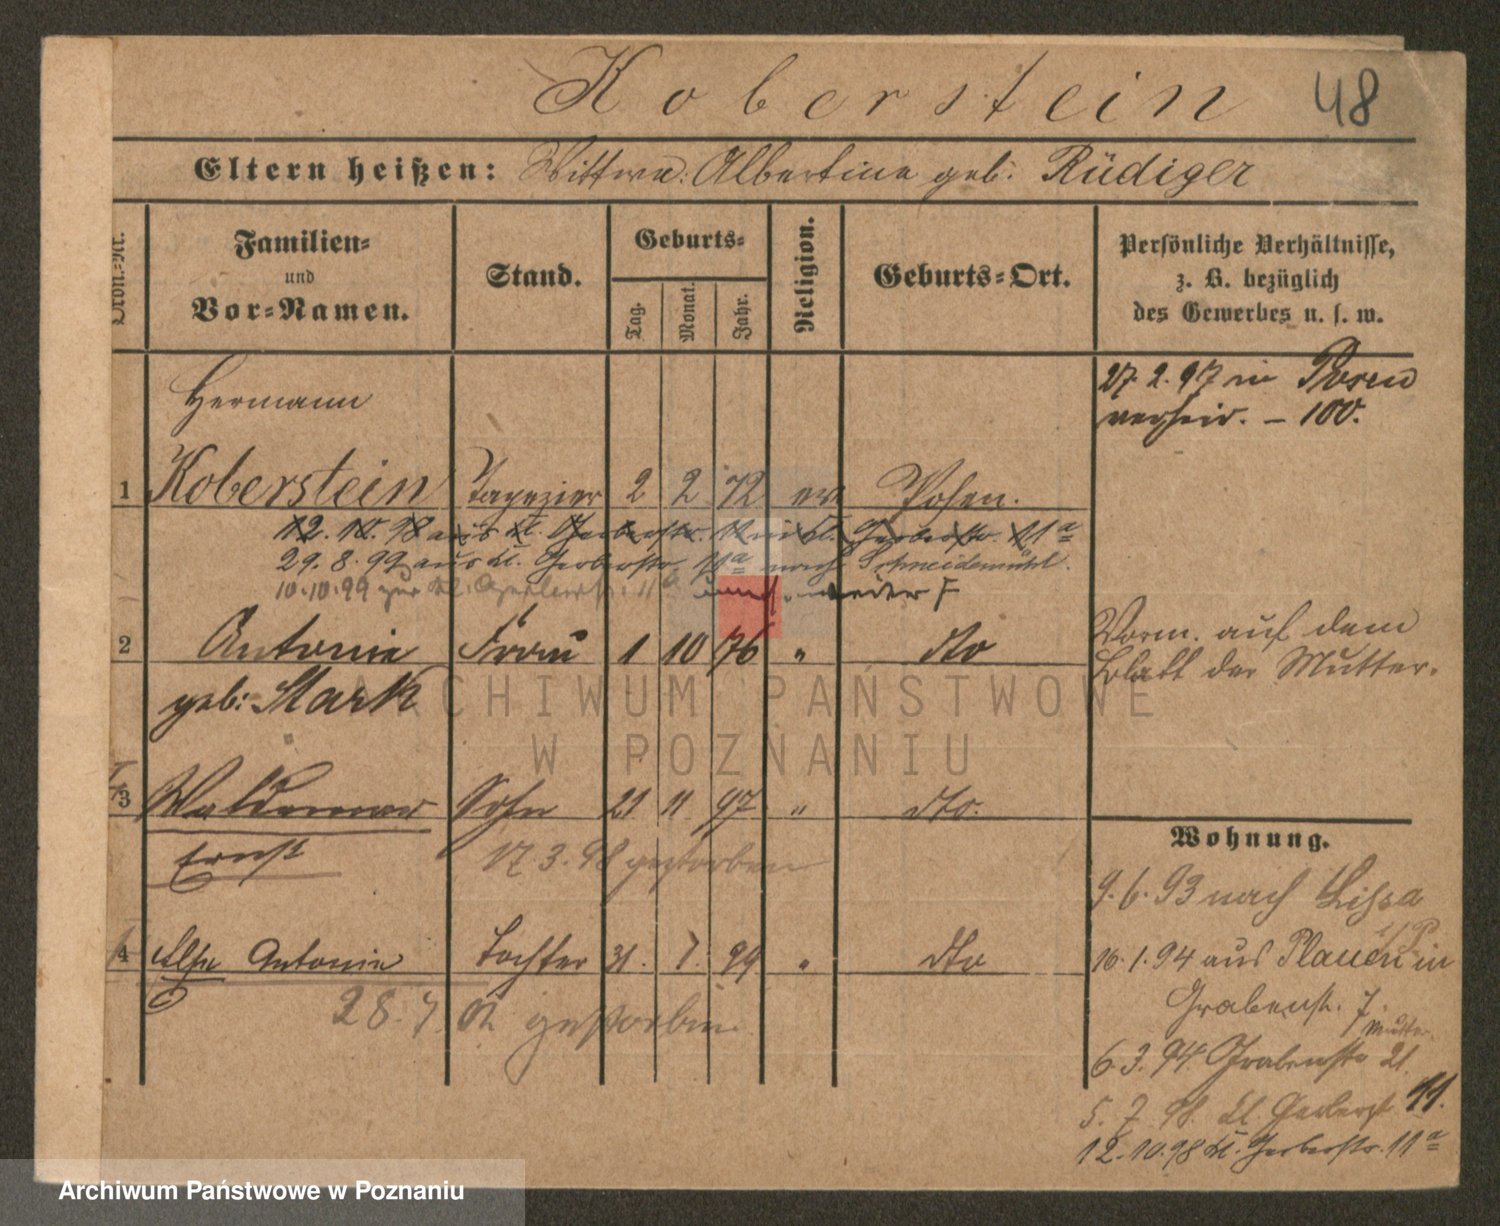 Koberstein 48
Eltern heißen: Wittwe: Albertine geb. Rüdiger
Ordn.-Nr.
Familien-
und
Vor-Namen.
Stand.
Geburts-
Tag. Monat. Jahr.
Religion.
Geburts-Ort.
Persönliche Verhältnisse,
z. B. bezüglich
des Gewerbes u. s. w.
Hermann
1 Koberstein Tapezier 2 2 72 ev Posen.
27. 2. 97 in Posen
verheir. – 100.
12. 10. 98 aus Kl. Gerberstr. 11 in Kl. Gerberstr. 11a
29. 8. 99 aus Kl. Gerberstr. 11a nach Schneidemühl.
10. 10. 99 zur Kl. Gerberstr. 11a
2 Antonie Frau 1 10 76 " dto
geb: Stark
Vorm. auf dem
Blatt der Mutter.
3 Waldemar Sohn 21 11 97 " dto.
Ernst 17. 3. 98 gestorben
4 Else Antonie Tochter 31. 7. 99 " dto
28. 7. 01 gestorben
Wohnung.
9. 6. 93 nach Lissa
16. 1. 94 aus Plauen i/P in
Grabenstr. 7.
Mutter.
6. 3. 94. Grabenstr 21.
5. 7. 98. Kl. Gerberst 11.
12. 10. 98 Kl. Gerberstr. 11a
ARCHIWUM PAŃSTWOWE
W POZNANIU
Archiwum Państwowe w Poznaniu